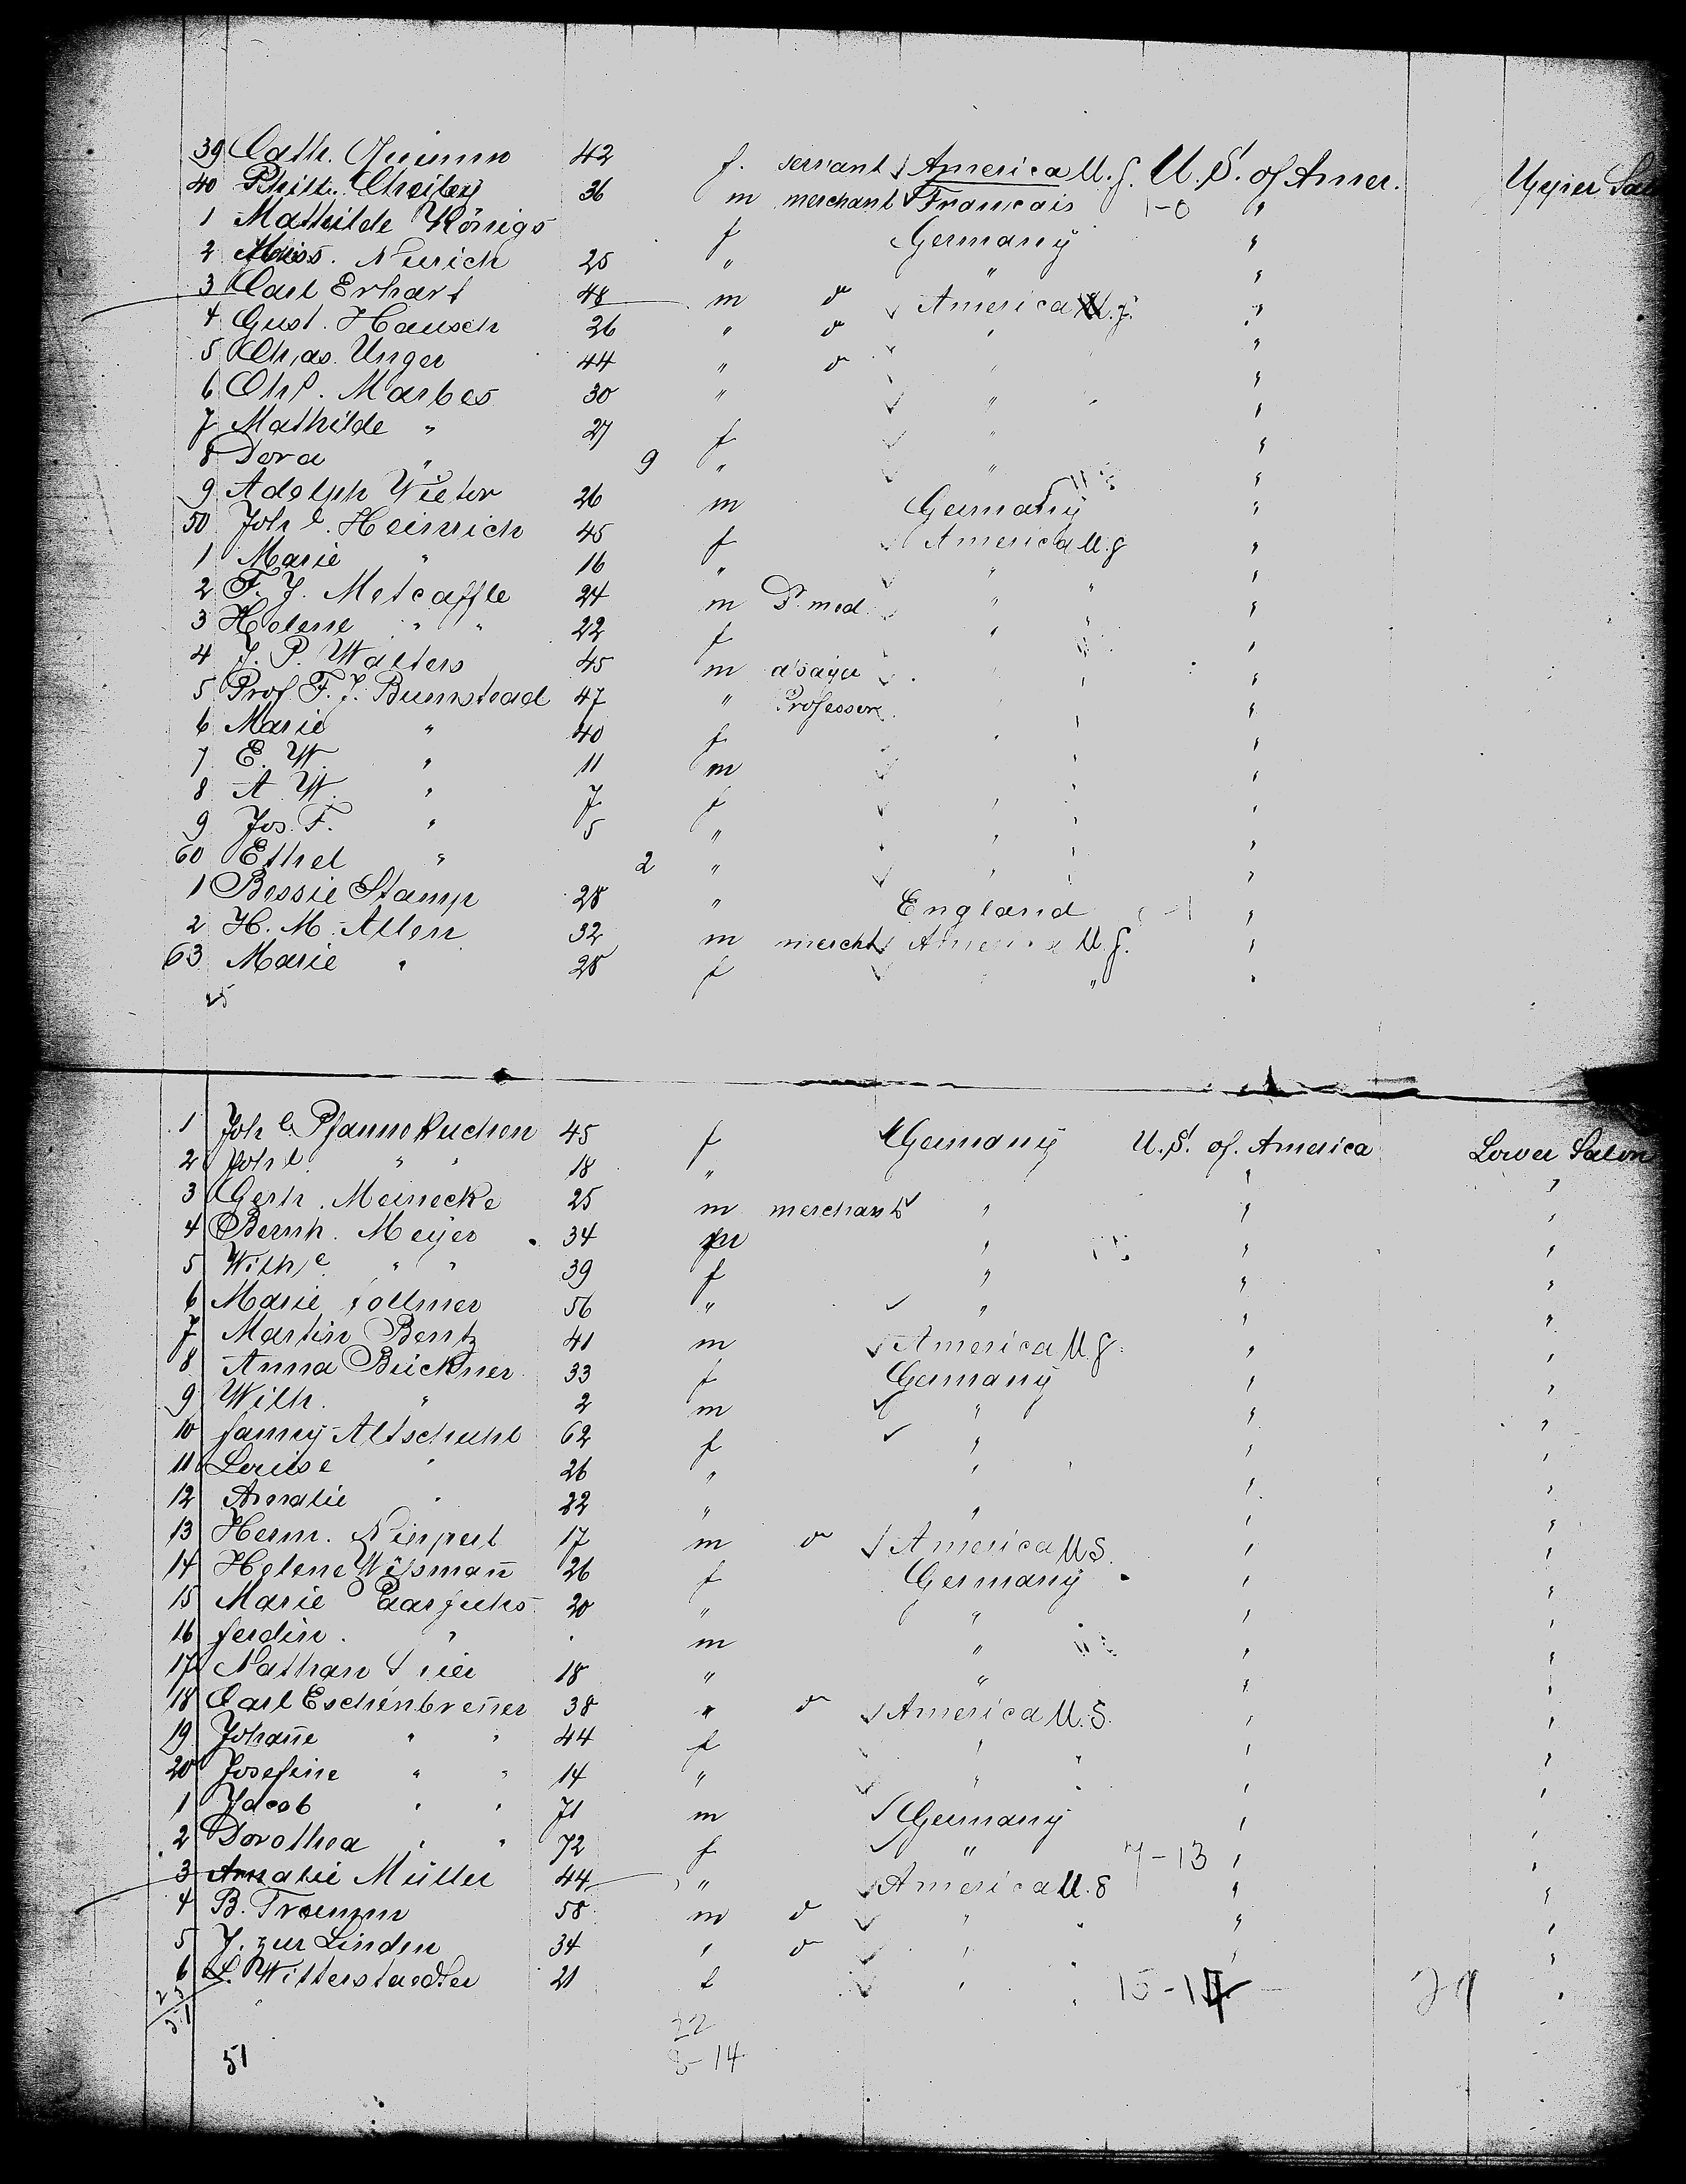 39 Cath. 42 f. servant America U.S. U.S. of Amer. Upper Sal
40 Philll. 36 m merchant Francais 1-0 "
1 Mathilde Königs f Germany "
2 Miss. Neurich 25 " " "
3 Carl Erhart 48 m d America U.S. "
4 Gust. Hausch 26 " d " "
5 Chas. Unger 44 " d " "
6 Chr. Marbes 30 " " "
7 Mathilde " 27 f " "
8 Dora " 9 " " "
9 Adolph Vietor 26 m Germany "
50 Joh e. Heinrich 45 f America U.S "
1 Marie " 16 " " "
2 F. J. Metcaffle 24 m D. med. " " "
3 Helene " " 22 f " " "
4 J. P. Walters 45 m " "
5 Prof. F. J. Bumstead 47 " Professor " "
6 Marie " 40 f " " "
7 E. W. " 11 m " "
8 A. W. " 7 f " " "
9 Jos. F. " 5 " " " "
60 Ethel " 2 " " " "
1 Bessie Stamp 28 " England "
2 H. M. Allen 32 m mercht America U.S. "
63 Marie " 28 f " " "
25
1 Joh e. Pfannekuchen 45 f Germany U.S. of. America Lower Salon
2 Joh e. " " 18 " " "
3 Gerh. Meinecke 25 m merchant " " "
4 Bernh. Meyer 34 m " " "
5 Wilh e. " " 39 f " " "
6 Marie Vollmer 56 " " " "
7 Martin Bentz 41 m America U.S. " "
8 Anna Bückner 33 f Germany " "
9 Wilh. " 2 m " " "
10 Fanny Altschuhl 62 f " " "
11 Louise " 26 " " " "
12 Amalie " 22 " " " "
13 Herm. 17 m d America U.S. " "
14 Helene Wissmañ 26 f Germany " "
15 Marie Paarfuhs 20 " " " "
16 Ferdin. " m " " "
17 Nathan 18 " " " "
18 Carl Eschenbreñer 38 " d America U.S. " "
19 Johañe " " 44 f " " " "
20 Josefine " " 14 " " " " "
1 Jacob " " 71 m Germany " "
2 Dorothea " " 72 f " 7-13 " "
3 Amalie Müller 44 " America U.S " "
4 B. Traumm 58 m d " " " "
5 J. zur Linden 34 " d " " "
6 L. Witterstaedter 21 f " " 15-14 "
51 22
8-14